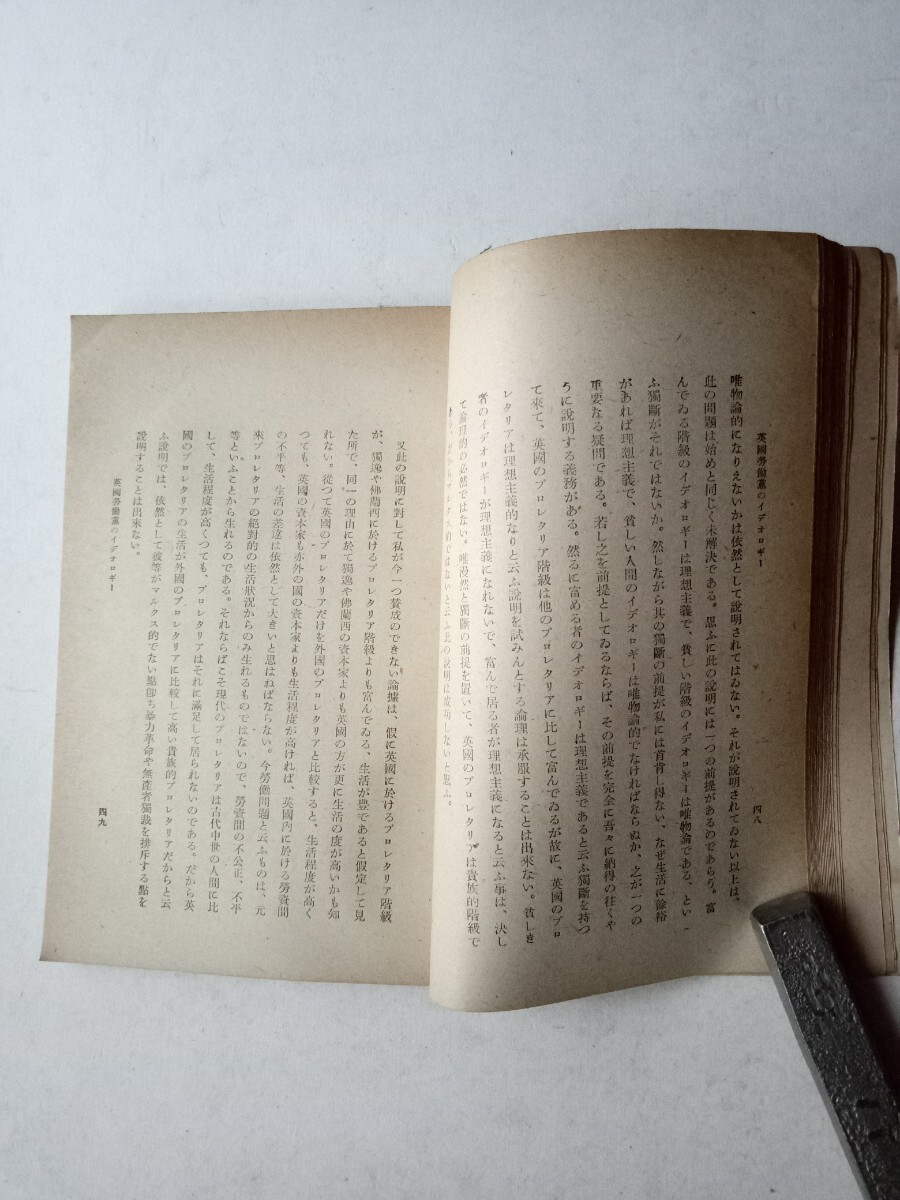 英國勞働黨のイデオロギー
四八
唯物論的になりえないかは依然として說明されてはゐない。それが說明されてゐない以上は、
此の問題は始めと同じく未解決である。思ふに此の說明には一つの前提があるのであらう。富
んでゐる階級のイデオロギーは理想主義で、貧しい階級のイデオロギーは唯物論である、とい
ふ獨斷がそれではないか。然しながら其の獨斷の前提が私には首肯し得ない、なぜ生活に餘裕
があれば理想主義で、貧しい人間のイデオロギーは唯物論的でなければならぬか、之が一つの
重要なる疑問である。若し之を前提としてゐるならば、その前提を完全に吾々に納得の往くや
うに說明する義務がある。然るに富める者のイデオロギーは理想主義であると云ふ獨斷を持つ
て來て、英國のプロレタリア階級は他のプロレタリアに比して富んでゐるが故に、英國のプロ
レタリアは理想主義的なりと云ふ說明を試みんとする論理は承服することは出來ない。貧しき
者のイデオロギーが理想主義になれないで、富んで居る者が理想主義になると云ふ事は、決し
て論理的の必然ではない。唯漫然と獨斷の前提を置いて、英國のプロレタリアは貴族的階級で
的ではないと云ふ此の說明は成功しないと思ふ。
又此の說明に對して私が今一つ贊成のできない論據は、假に英國に於けるプロレタリア階級
が、獨逸や佛蘭西に於けるプロレタリア階級よりも富んでゐる、生活が豐であると假定して見
た所で、同一の理由に於て獨逸や佛蘭西の資本家よりも英國の方が更に生活の度が高いかも知
れない。從つて英國のプロレタリアだけを外國のプロレタリアと比較すると、生活程度が高く
つても、英國の資本家も亦外の國の資本家よりも生活程度が高ければ、英國內に於ける勞資間
の不平等、生活の差違は依然として大きいと思はねばならない。今勞働問題と云ふものは、元
來プロレタリアの絕對的の生活狀況からのみ生れるものではないので、勞資間の不公正、不平
等といふことから生れるのである。それならばこそ現代のプロレタリアは古代中世の人間に比
して、生活程度が高くつても、プロレタリアはそれに滿足して居られないのである。だから英
國のプロレタリアの生活が外國のプロレタリアに比較して高い貴族的プロレタリアだからと云
ふ說明では、依然として彼等がマルクス的でない點卽ち暴力革命や無產者獨裁を排斥する點を
說明することは出來ない。
英國勞働黨のイデオロギー
四九